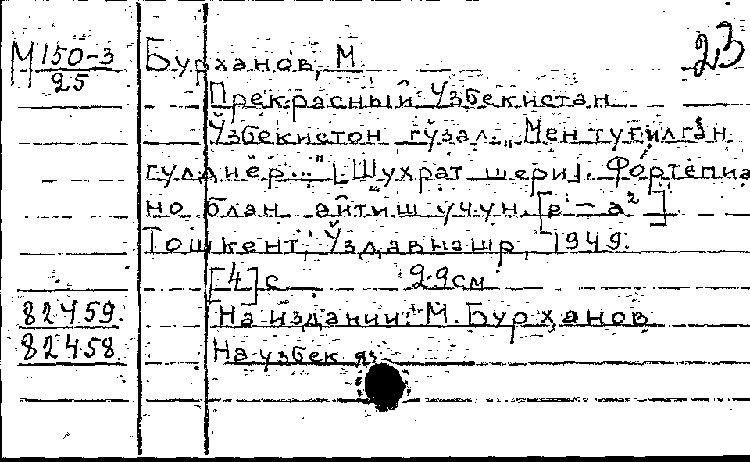 М 150-3 Бурханов, М 23
25
Прекрасный Узбекистан
Ўзбекистон гўзал. „Мен туғилган
гул диёр..." [Шухрат шери]. Фортепиа
но блан айтиш учун. [в - а²]
Тошкент, Ўздавнашр, 1949.
[4] с 29 см
82459. На издании: М. Бурханов
82458 На узбек яз